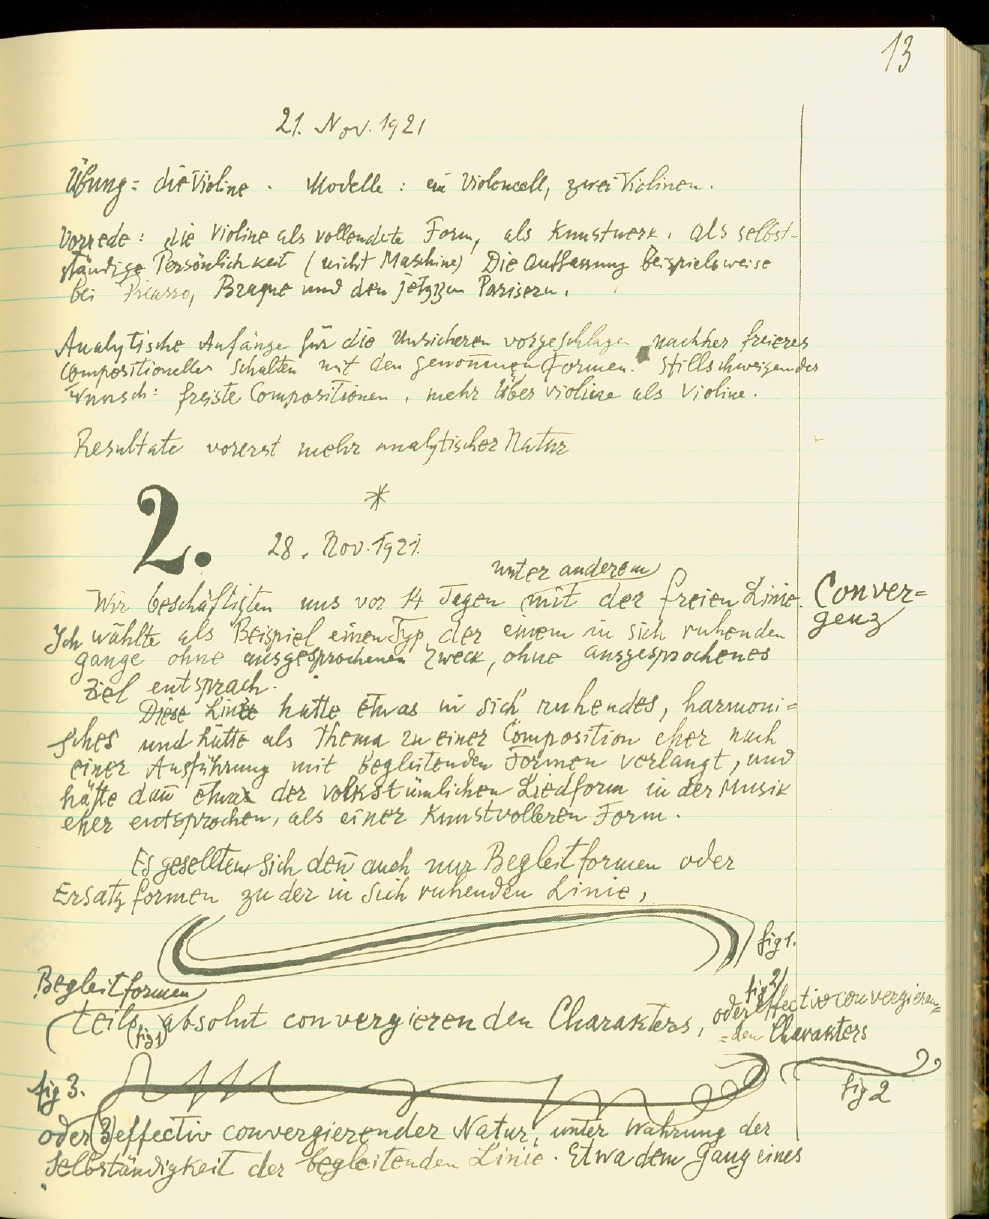 13
21. Nov. 1921
Übung = die Violine . Modelle : ein Violoncell, zwei Violinen .
Vorrede : die Violine als vollendete Form, als Kunstwerk . als selbst-
ständige Persönlichkeit (nicht Maschine) Die Auffassung beispielsweise
bei Picasso, Braque und den jetzgen Parisern .
Analytische Anfänge für die Unsicheren vorgeschlagen nachher freieres
compositionelles Schalten mit den gewonnenen Formen . Stillschweigender
Wunsch : freiste Compositionen , mehr über violine als Violine .
Resultate vorerst mehr analytischer Natur
*
2. 28. Nov. 1921.
unter anderem
Wir beschäftigten uns vor 14 Tagen mit der freien Linie. Conver=
genz
Ich wählte als Beispiel einen Typ der einem in sich ruhenden
gange ohne ausgesprochenen Zweck, ohne ausgesprochenes
Ziel entsprach .
Diese Linie hatte etwas in sich ruhendes, harmoni=
sches und hätte als Thema zu einer Composition eher nach
einer Ausführung mit begleitenden Formen verlangt, und
hätte dañ etwa der volkstümlichen Liedform in der Musik
eher entsprochen, als einer Kunstvolleren Form .
Es gesellten sich deñ auch nur Begleitformen oder
Ersatzformen zu der in sich ruhenden Linie,
fig 1.
Begleitformen
teils (fig 1) absolut convergierenden Charakters, oder fig 2) effectiv convergieren=
=den Charakters
fig 3.
fig 2
oder (3) effectiv convergierender Natur, unter Wahrung der
Selbständigkeit der begleitenden Linie . Etwa dem Gang eines